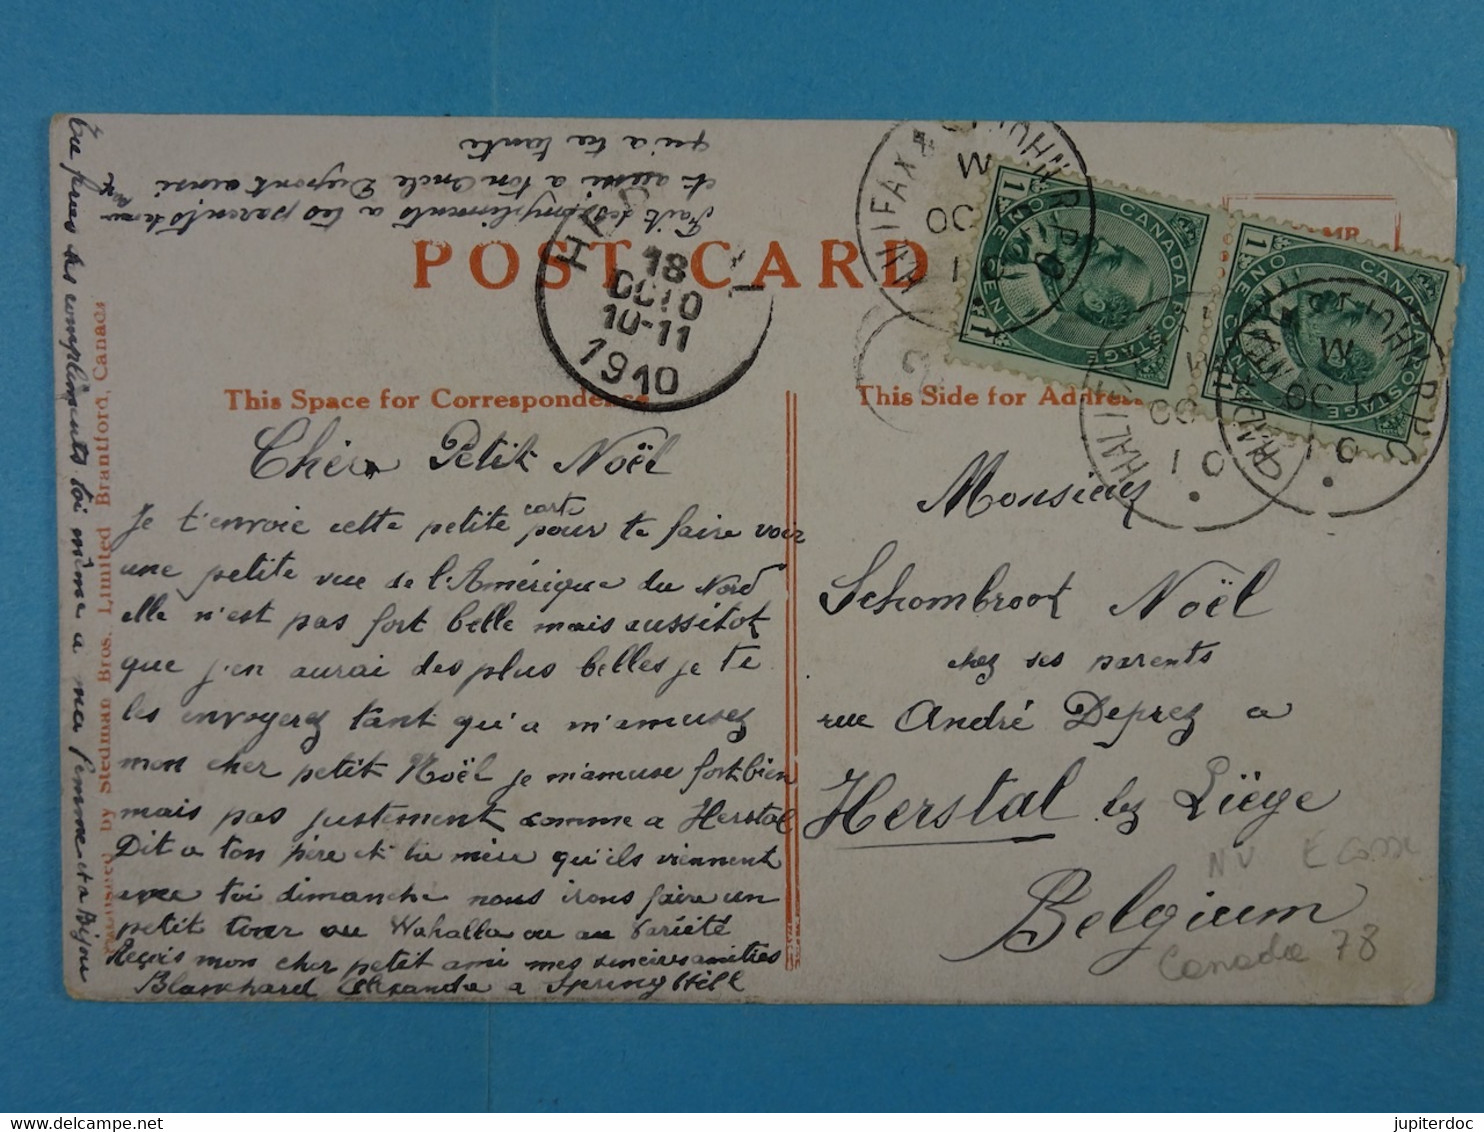 POST CARD
This Space for Correspondence
This Side for Address
Cher Petit Noël
Je t'envoie cette petite carte pour te faire voir
une petite vue de l'Amérique du Nord
elle n'est pas fort belle mais aussitot
que j'en aurai des plus belles je te
les envoyerez tant qu'a m'amusez
mon cher petit Noël je m'amuse fort bien
mais pas justement comme a Herstal
Dit a ton père et ta mère qu'ils viennent
avec toi dimanche nous irons faire un
petit tour au Wahalla ou au Variété
Reçois mon cher petit ami mes sincires amities
Blanchard Alexandre a Spring Hill
Fait des compliments a tes parents
et aussi a ton Oncle Dupont ainsi
qu'a ta tante
les compliments toi même a ma femme et a Bijou
Monsieur
Schombroot Noël
chez ses parents
rue André Deprez a
Herstal lez Liège
Belgium
NV Ecosse
Canada 78
18
OCTO
10-11
1910
HALIFAX &
M
OC
10
CANADA POSTAGE
ONE CENT
1
1
CANADA POSTAGE
ONE CENT
1
1
by Stedman Bros. Limited Brantford, Canada